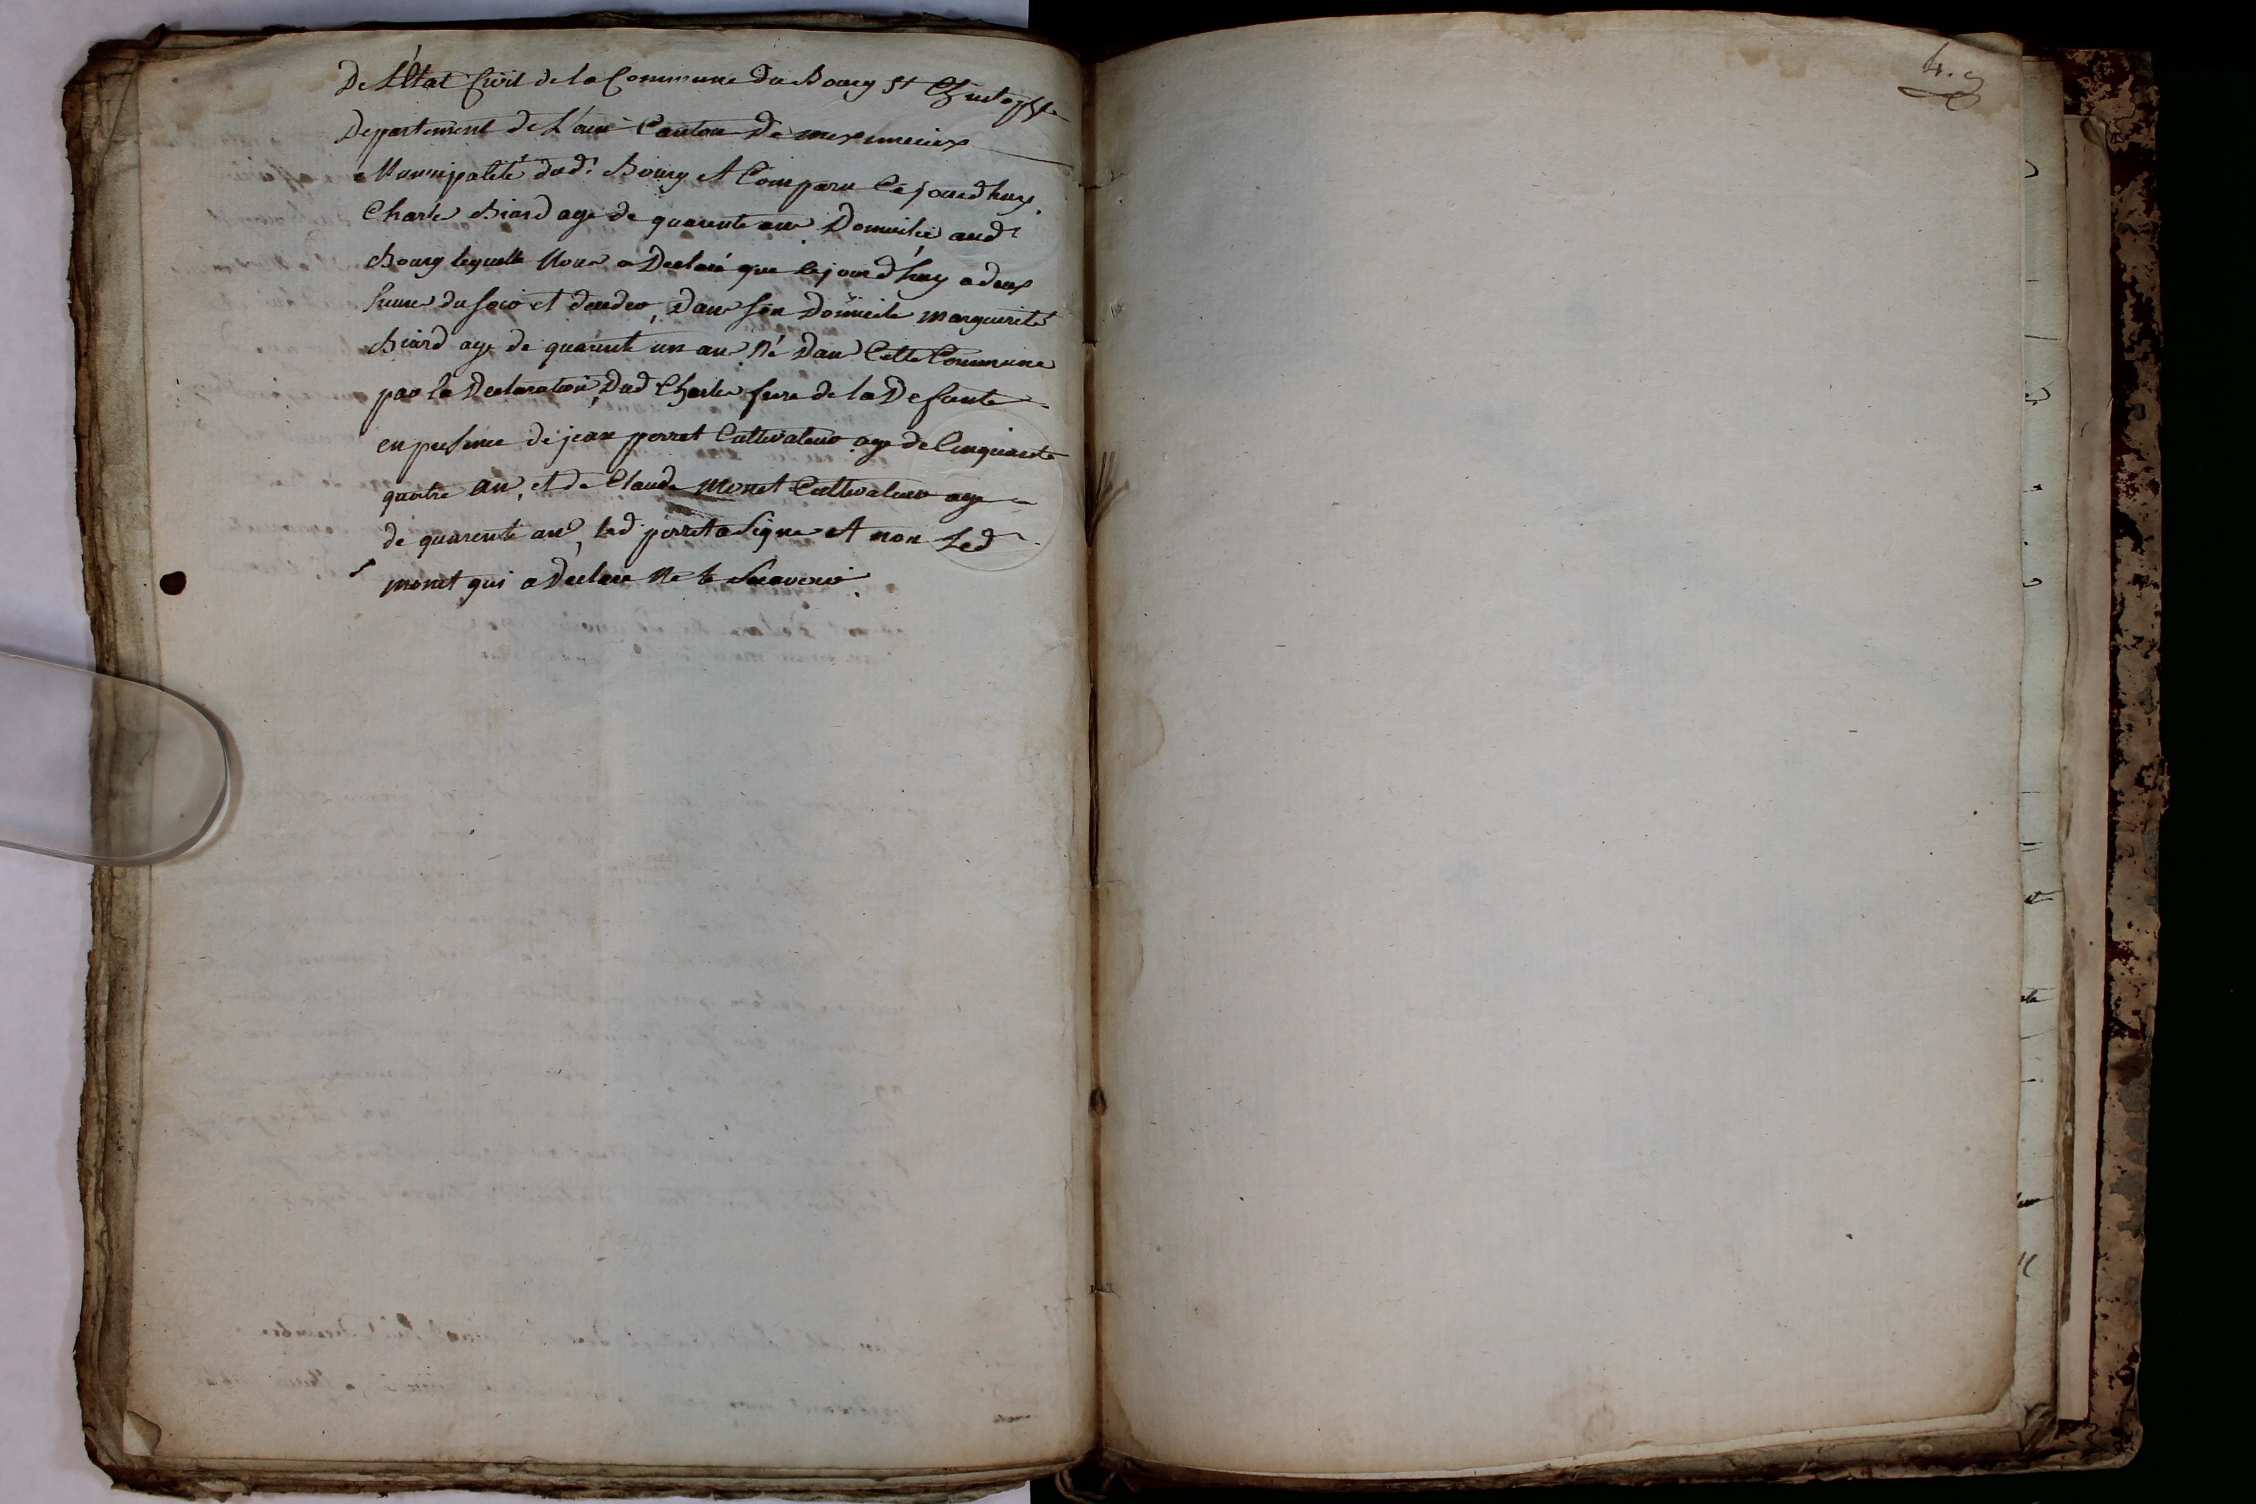 De L'État Civil de la Commune du Bourg St Christophe
Departement de L'ain Canton de meximieux
Municipalité dud.t Bourg A Comparu Cejourd'huy
Charle Biard age de quarente ans Domicilié aud.t
Bourg lequelle Nous a Declaré que cejourd'huy a deux
heure du soir et decedee, Dans son Domicile marguerite
Biard age de quarente un ans Né Dans Cette Commune
par la Declaration Dud Charle frere de la Defunte
en presence de jean perret Cultivateur age de Cinquante
quatre ans, et de Claude monet Cultivateur age
de quarente ans, led perret a Signe et non Led
monet qui a Declare Ne le Scavoir.